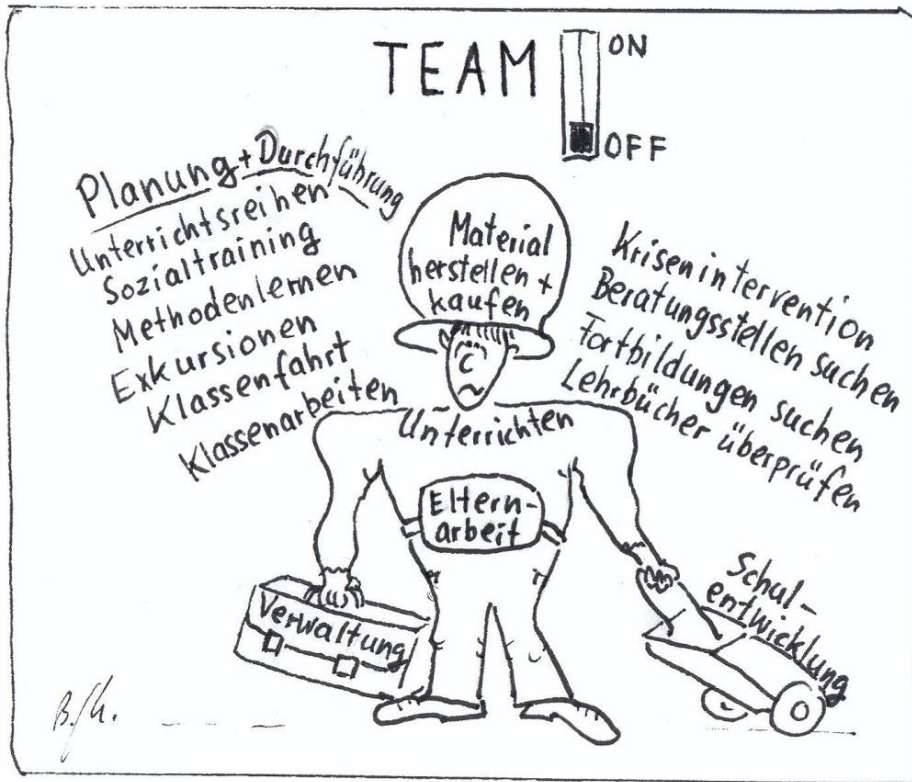 TEAM
ON
OFF
Planung + Durchführung
Unterrichtsreihen
Sozialtraining
Methodenlernen
Exkursionen
Klassenfahrt
Klassenarbeiten
Material
herstellen +
kaufen
Krisenintervention
Beratungsstellen suchen
Fortbildungen suchen
Lehrbücher überprüfen
Unterrichten
Eltern-
arbeit
Verwaltung
Schul-
entwicklung